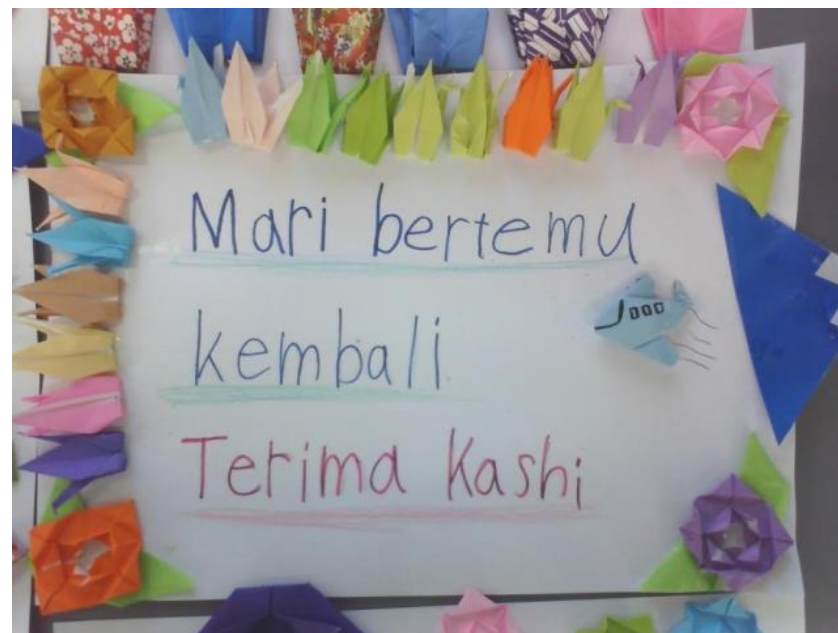 Mari bertemu
kembali
Terima Kashi